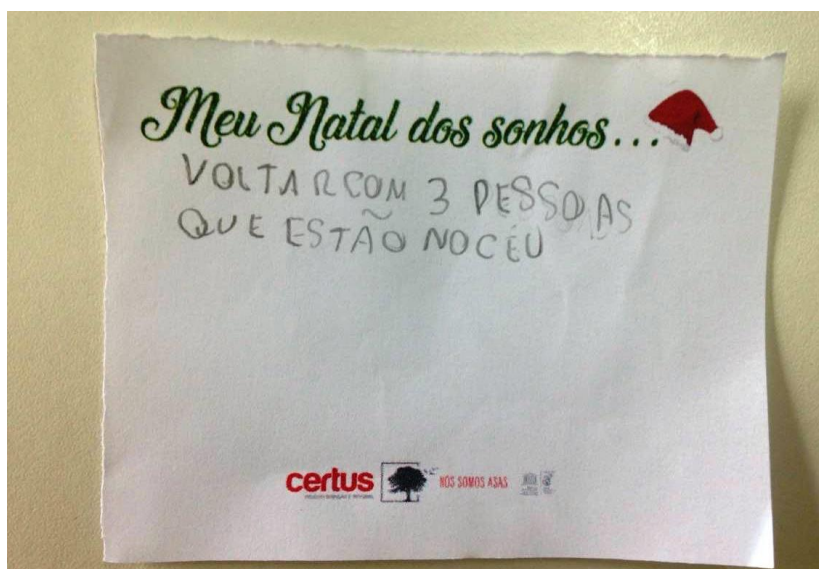 Meu Natal dos sonhos...
VOLTAR COM 3 PESSOAS
QUE ESTÃO NO CÉU
certus
NÓS SOMOS ASAS